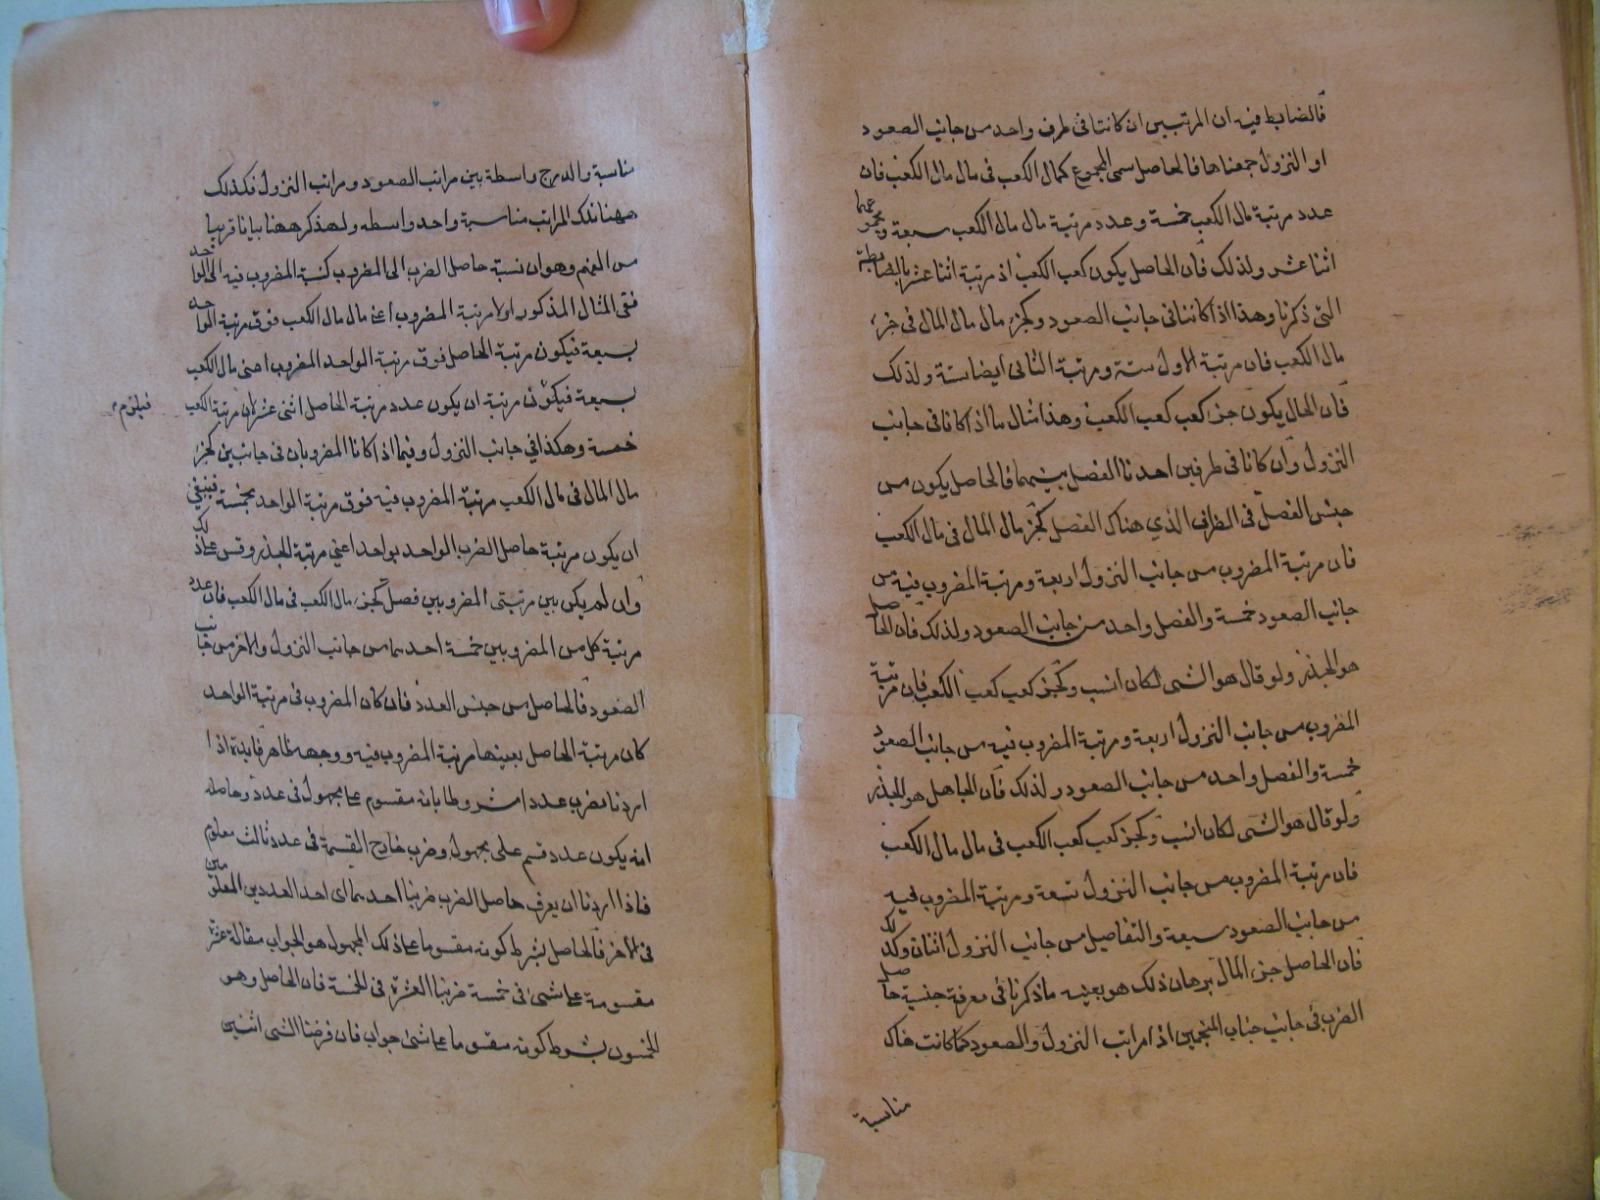 فالضابط فيه ان المرتبتين ان كانتا فى طرف واحد من جانب الصعود
او النزول جمعناها فالحاصل سمى المجموع كمال الكعب فى مال مال الكعب فان
عدد مرتبة مال الكعب خمسة وعدد مرتبة مال مال الكعب سبعة ومجموعهما
اثنا عشر ولذلك فان الحاصل يكون كعب الكعب اذ مرتبة اثنا عشر بالضابطة
التى ذكرنا وهذا اذا كانتا فى جانب الصعود وكجزء مال مال المال فى جزء
مال الكعب فان مرتبة الاول ستة ومرتبة الثانى ايضا ستة ولذلك
فان الحال يكون جزء كعب كعب الكعب وهذا مثال ما اذا كانا فى جانب
النزول وان كانا فى طرفين احدنا الفصل بينهما فالحاصل يكون من
جنس الفصل فى الطرف الذي هناك الفصل كجزء مال المال فى مال الكعب
فان مرتبة المضروب من جانب النزول اربعة ومرتبة المضروب فيه من
جانب الصعود خمسة والفصل واحد من جانب الصعود ولذلك فان الحاصل
هو الجذر ولو قال هو الشى لكان انسب وكجزء كعب كعب الكعب فان مرتبة
المضروب من جانب النزول اربعة ومرتبة المضروب فيه من جانب الصعود
خمسة والفصل واحد من جانب الصعود ولذلك فان الحاصل هو الجذر
ولو قال هو الشى لكان انسب وكجزء كعب كعب الكعب فى مال مال الكعب
فان مرتبة المضروب من جانب النزول تسعة ومرتبة المضروب فيه
من جانب الصعود سبعة والتفاصيل من جانب النزول اثنان وكذلك
فان الحاصل جزء المال برهان ذلك هو بعينه ما ذكرنا فى معرفة جنسية حاصل
الضرب فى جانب حساب المنجمين اذ امراتب النزول والصعود كما كانت هناك
مناسبة
مناسبة والدرج واسطة بين مراتب الصعود ومراتب النزول فكذلك
ههنا تلك المراتب مناسبة واحد واسطه ولنذكر ههنا بيانا قريبا
من الفهم وهو ان نسبة حاصل الضرب الى المضروب كنسبة المضروب فيه الى الواحد
ففى المثال المذكور اولا مرتبة المضروب اعنى مال مال الكعب فوق مرتبة الواحد
بسبعة فيكون مرتبة الحاصل فوق مرتبة الواحد المضروب اعنى مال الكعب
بسبعة فيكون مرتبة ان يكون عدد مرتبة الحاصل اثنى عشر لان مرتبة الكعب
فيلزم
خمسة وهكذا في جانب النزول وفيما اذا كانا المضروبان فى جانبين كجزء
مال المال فى مال الكعب مرتبة المضروب فيه فوق مرتبة الواحد بخمسة فينبغي
ان يكون مرتبة حاصل الضرب الواحد بواحد اعني مرتبة الجذر وقس على ذلك
وان لم يكن بين مرتبتى المضروبين فصل كجزء مال الكعب فى مال الكعب فان عدد
مرتبة كل من المضروبين خمسة احدهما من جانب النزول والاخر من جانب
الصعود فالحاصل من جنس العدد فان كان المضروب فى مرتبة الواحد
كان مرتبة الحاصل بعينها مرتبة المضروب فيه ووجهه ظاهر فايدة اذا
اردنا ضرب عدد مقسوم على مجهول فى عدد وحاصله
انه يكون عدد قسم على مجهول وضرب خارج القسمة فى عدد ثالث معلوم
فاذا اردنا ان يعرف حاصل الضرب ضربنا احدهما اى احد العددين المعلومين
فى الاخر فالحاصل بشرط كونه مقسوما على ذلك المجهول هو الجواب مقالة عشرة
مقسومة على شىء فى خمسة ضربنا العشرة فى الخمسة فان الحاصل وهو
الخمسون بشرط كونه مقسوما على شى جواب فان فرضنا الشى اثنين